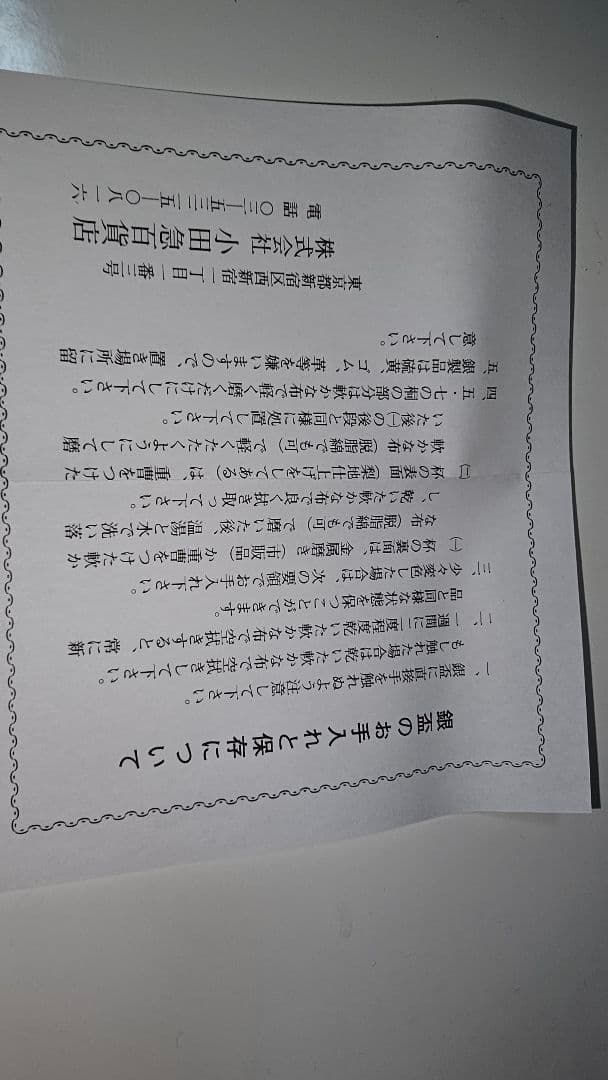 銀盃のお手入れと保存について
一、銀盃に直接手を触れぬよう注意して下さい。
もし触れた場合は乾いた軟かな布で空拭きして下さい。
二、一週間に二度程度乾いた軟かな布で空拭きすると、常に新
品と同様な状態を保つことができます。
三、少々変色した場合は、次の要領でお手入れ下さい。
㈠ 杯の裏面は、金属磨き（市販品）か重曹をつけた軟か
な布（脱脂綿でも可）で磨いた後、温湯と水で洗い落
し、乾いた軟かな布で良く拭き取って下さい。
㈡ 杯の表面（梨地仕上げをしてある）は、重曹をつけた
軟かな布（脱脂綿でも可）で軽くたたくようにして磨
いた後㈠の後段と同様に処置して下さい。
四、五・七の桐の部分は軟かな布で軽く磨くだけにして下さい。
五、銀製品は硫黄、ゴム、革等を嫌いますので、置き場所に留
意して下さい。
東京都新宿区西新宿一丁目一番三号
株式会社 小田急百貨店
電話 〇三―五三二五―〇八一六